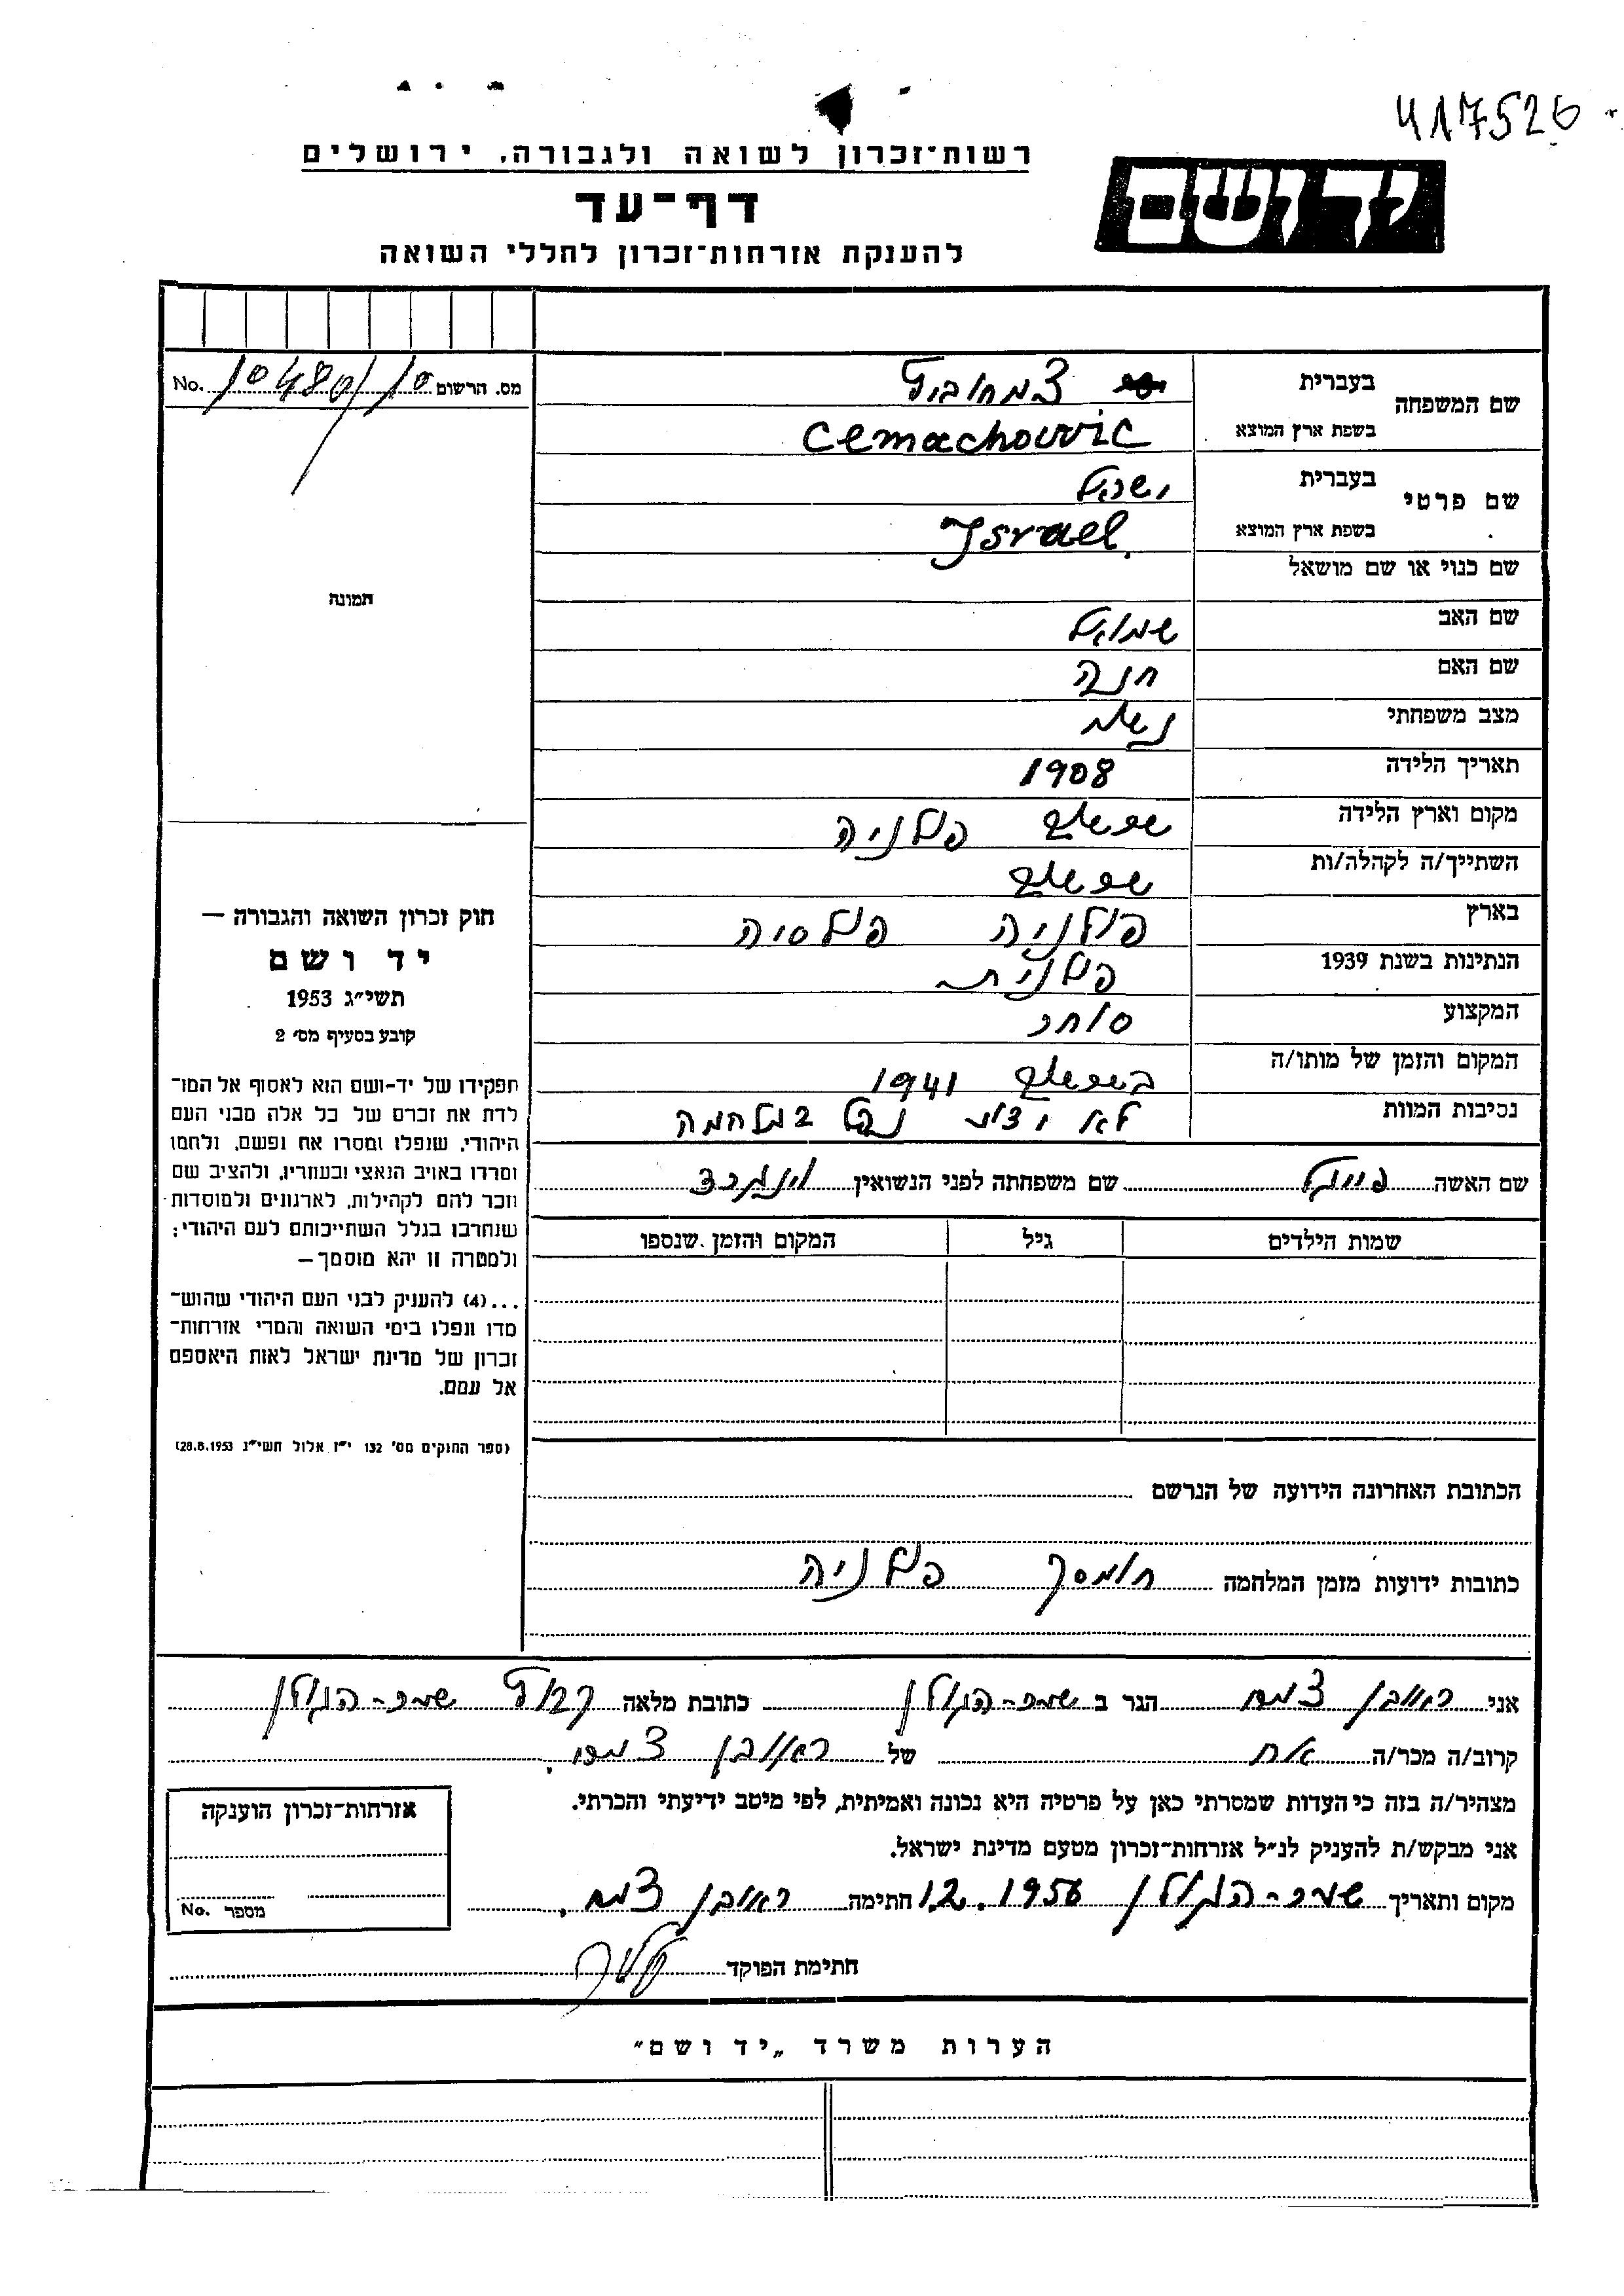 417526
רשות־זכרון לשואה ולגבורה, ירושלים
יד ושם
דף־עד
להענקת אזרחות־זכרון לחללי השואה
מס. הרשום 10480/10 No.
שם המשפחה
בעברית צמחוביץ
בשפת ארץ המוצא Cemachowic
שם פרטי
בעברית ישראל
בשפת ארץ המוצא Israel
שם כנוי או שם מושאל
תמונה
שם האב שמואל
שם האם חנה
מצב משפחתי נשוי
תאריך הלידה 1908
מקום וארץ הלידה פולניה
השתייך/ה לקהלה/ות
בארץ פולניה פולסיה
הנתינות בשנת 1939 פולנית
המקצוע סוחר
המקום והזמן של מותו/ה 1941
נסיבות המוות לא ידוע נפל במלחמה
שם האשה שם משפחתה לפני הנשואין
שמות הילדים גיל המקום והזמן שנספו
חוק זכרון השואה והגבורה —
יד ושם
תשי״ג 1953
קובע בסעיף מס׳ 2
תפקידו של יד-ושם הוא לאסוף אל המו־
לדת את זכרם של כל אלה מבני העם
היהודי, שנפלו ומסרו את נפשם, נלחמו
ומרדו באויב הנאצי ובעוזריו, ולהציב שם
וזכר להם לקהילות, לארגונים ולמוסדות
שנחרבו בגלל השתייכותם לעם היהודי;
ולמטרה זו יהא מוסמך —
...(4) להעניק לבני העם היהודי שהוש־
מדו ונפלו בימי השואה והמרי אזרחות־
זכרון של מדינת ישראל לאות היאספם
אל עמם.
(ספר החוקים מס׳ 132 י״ז אלול תשי״ג 28.8.1953)
הכתובת האחרונה הידועה של הנרשם
כתובות ידועות מזמן המלחמה חומסק פולניה
אני ראובן צמח הגר ב שער-הגולן כתובת מלאה קבוץ שער-הגולן
קרוב/ה מכר/ה אח של ראובן צמח.
מצהיר/ה בזה כי העדות שמסרתי כאן על פרטיה היא נכונה ואמיתית, לפי מיטב ידיעתי והכרתי.
אני מבקש/ת להעניק לנ״ל אזרחות־זכרון מטעם מדינת ישראל.
מקום ותאריך שער-הגולן 1.2.1956 חתימה ראובן צמח.
חתימת הפוקד
אזרחות־זכרון הוענקה
מספר No.
הערות משרד „יד ושם״